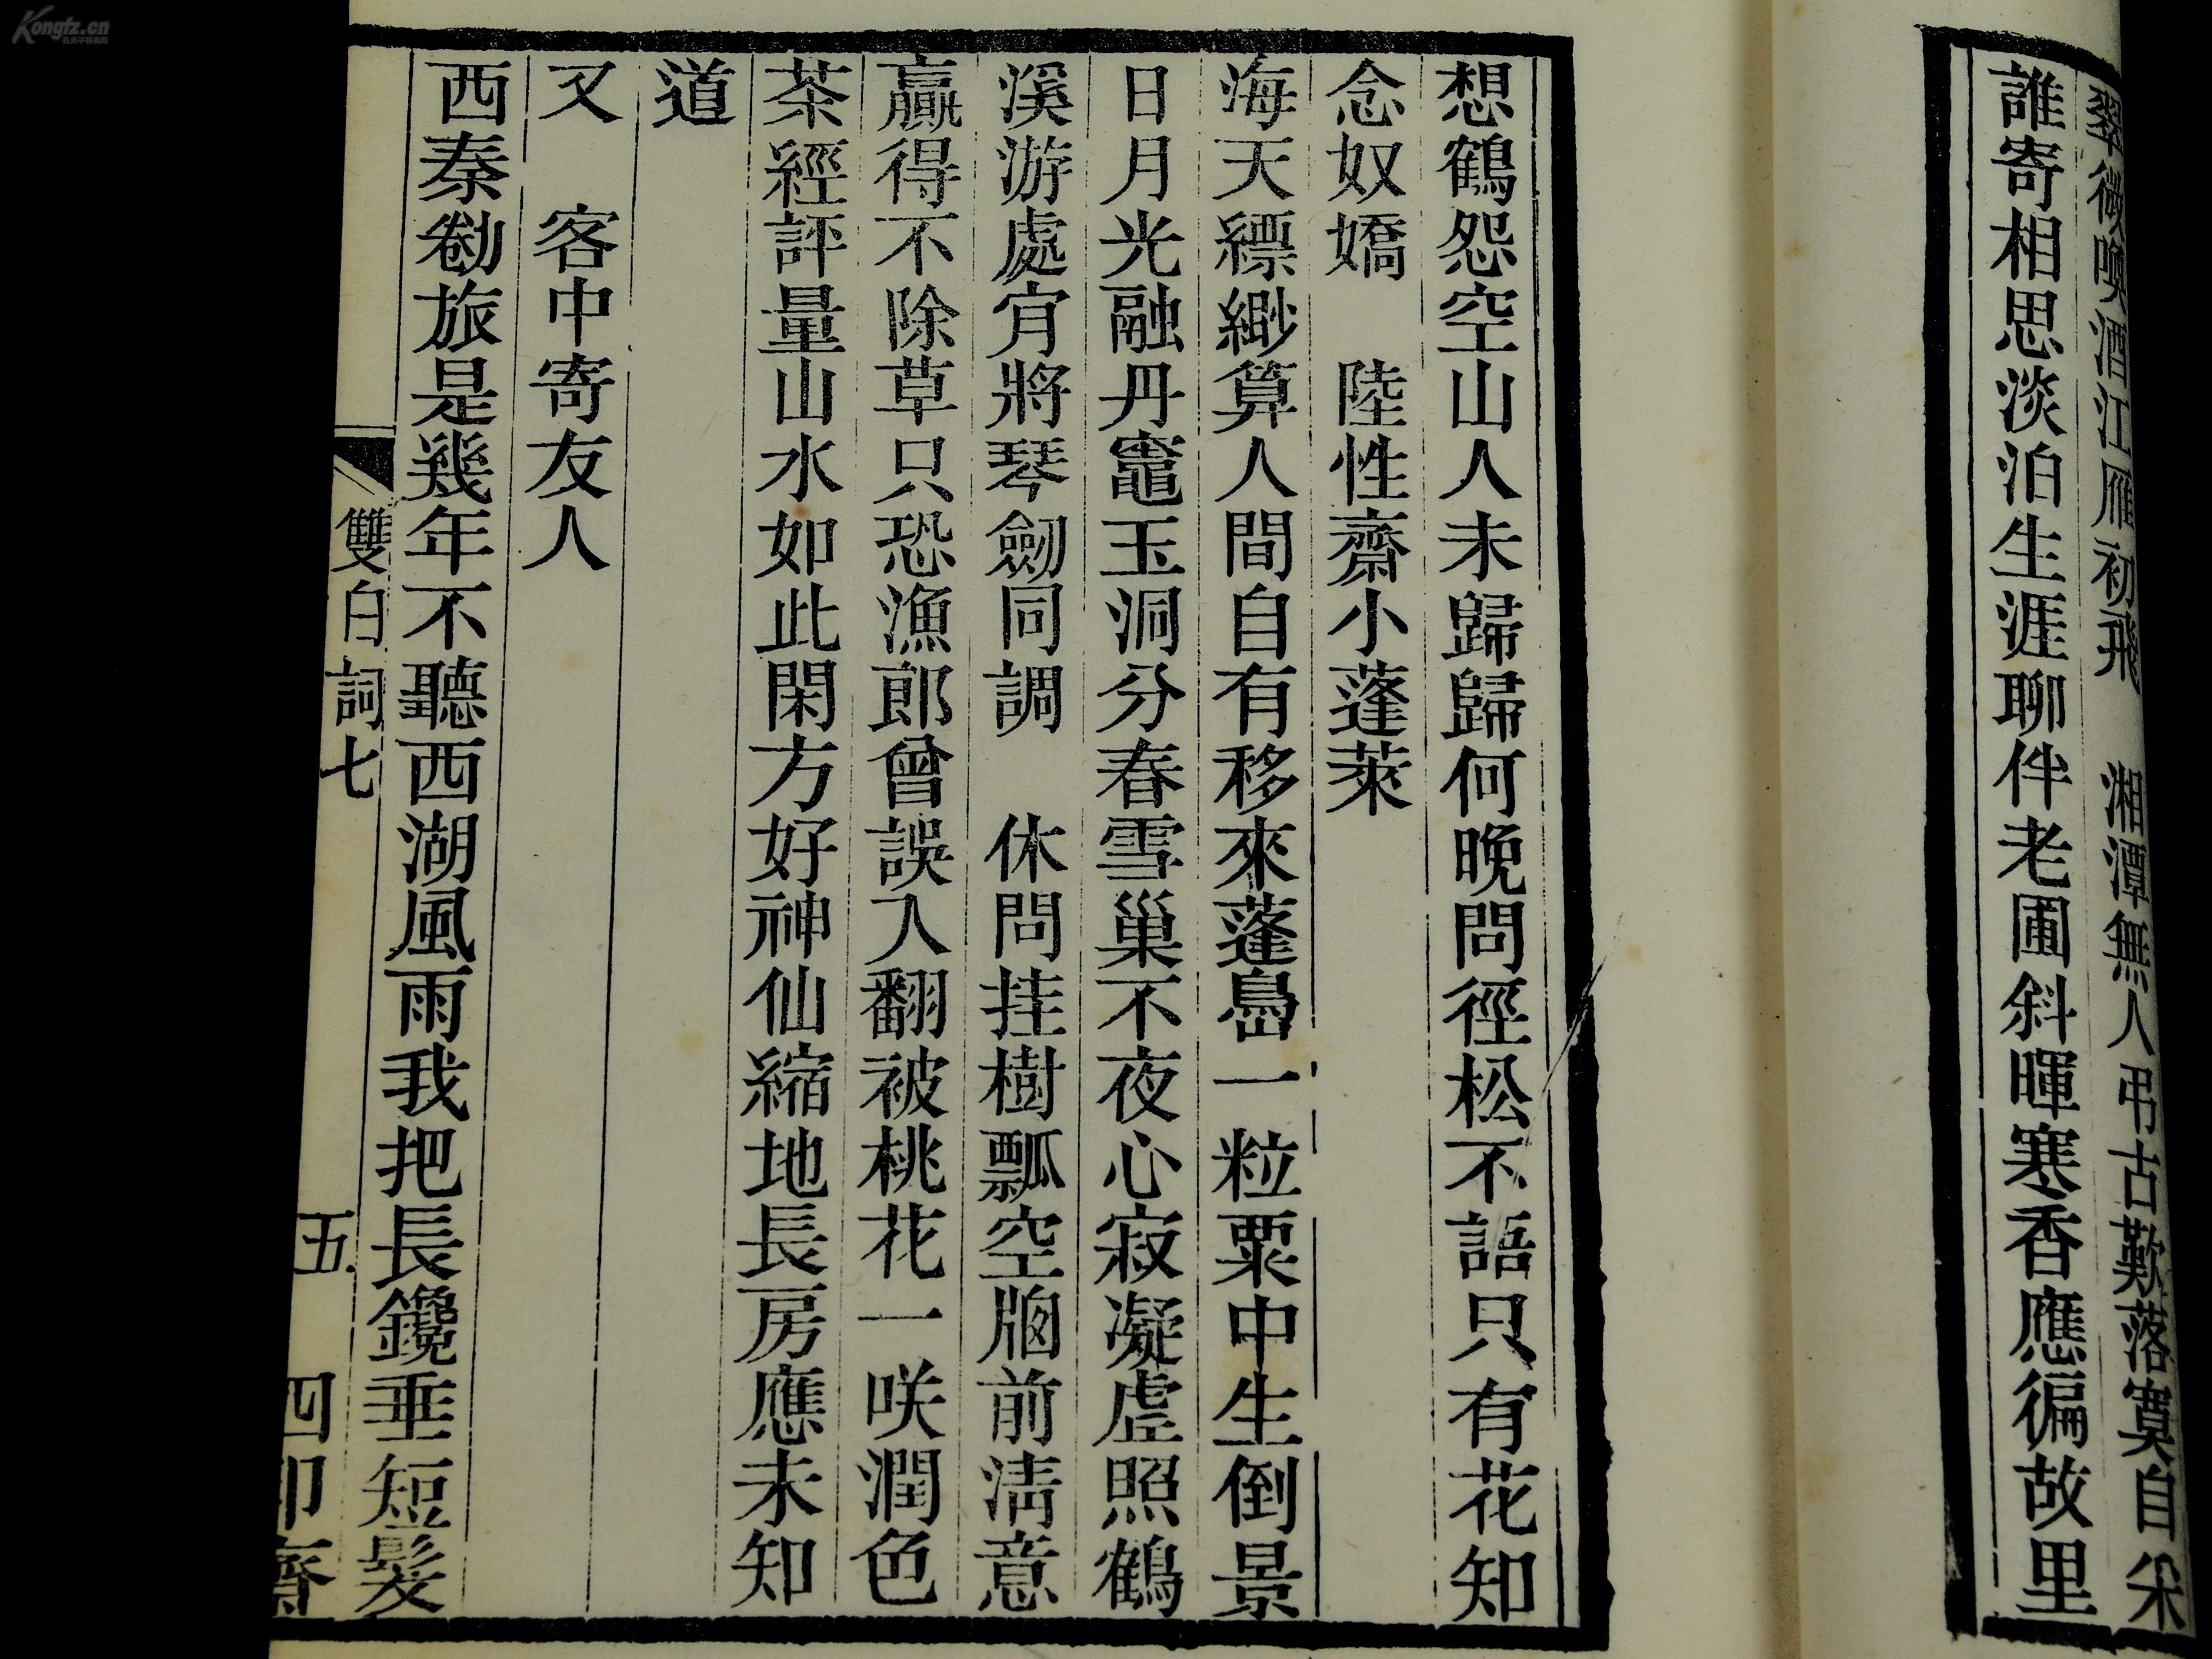 翠微喚酒江雁初飛　湘潭無人弔古歎落寞自采
誰寄相思淡泊生涯聊伴老圃斜暉寒香應徧故里
想鶴怨空山人未歸歸何晚問徑松不語只有花知
念奴嬌　陸性齋小蓬萊
海天縹緲算人間自有移來蓬島一粒粟中生倒景
日月光融丹竈玉洞分春雪巢不夜心寂凝虛照鶴
溪游處肎將琴劒同調　休問挂樹瓢空牕前淸意
贏得不除草只恐漁郎曾誤入翻被桃花一咲潤色
茶經評量山水如此閑方好神仙縮地長房應未知
道
又　客中寄友人
西秦勌旅是幾年不聽西湖風雨我把長鑱垂短髮
雙白詞七　五　四印齋
Kongfz.cn